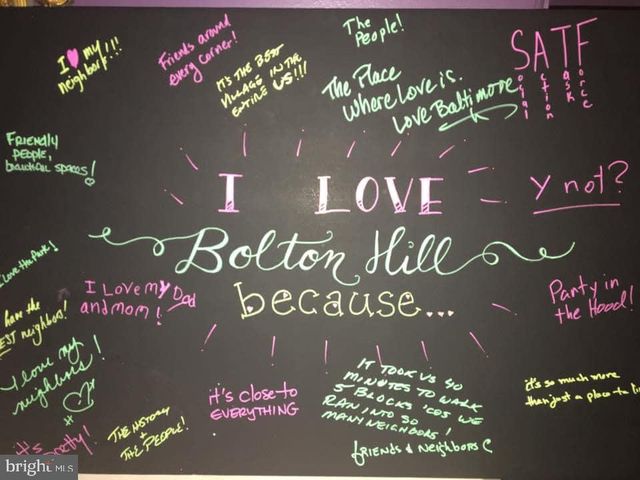 I ♥ my
neighbors!!!
Friends around
every corner!
IT'S THE BEST
VILLAGE IN THE
ENTIRE US!!!
The
People!
The Place
Where Love is.
Love Baltimore
SATF
Social
Action
Task
Force
FRIENDLY
PEOPLE,
beautiful spaces!
y not?
I LOVE
Bolton Hill
because...
Love the Park!
have the
EST neighbors!
I LOVE MY Dad
and mom!
Party in
the Hood!
I love my
neighbors!
it's close to
EVERYTHING
IT TOOK US 40
MINUTES TO WALK
5 BLOCKS 'COS WE
RAN INTO 30
MANY NEIGHBORS!
friends & neighbors
it's so much more
than just a place to li
THE HISTORY
+
THE PEOPLE!
it's
pretty!
bright MLS